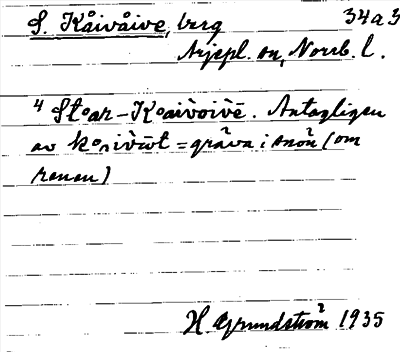 S. Kåivåive, berg 34a3
Arjepl. sn, Norrb. l.
4 Stoar-Koaivoivē. Antagligen
av koaivōt = gräva i snön (om
renen)
H. Grundström 1935